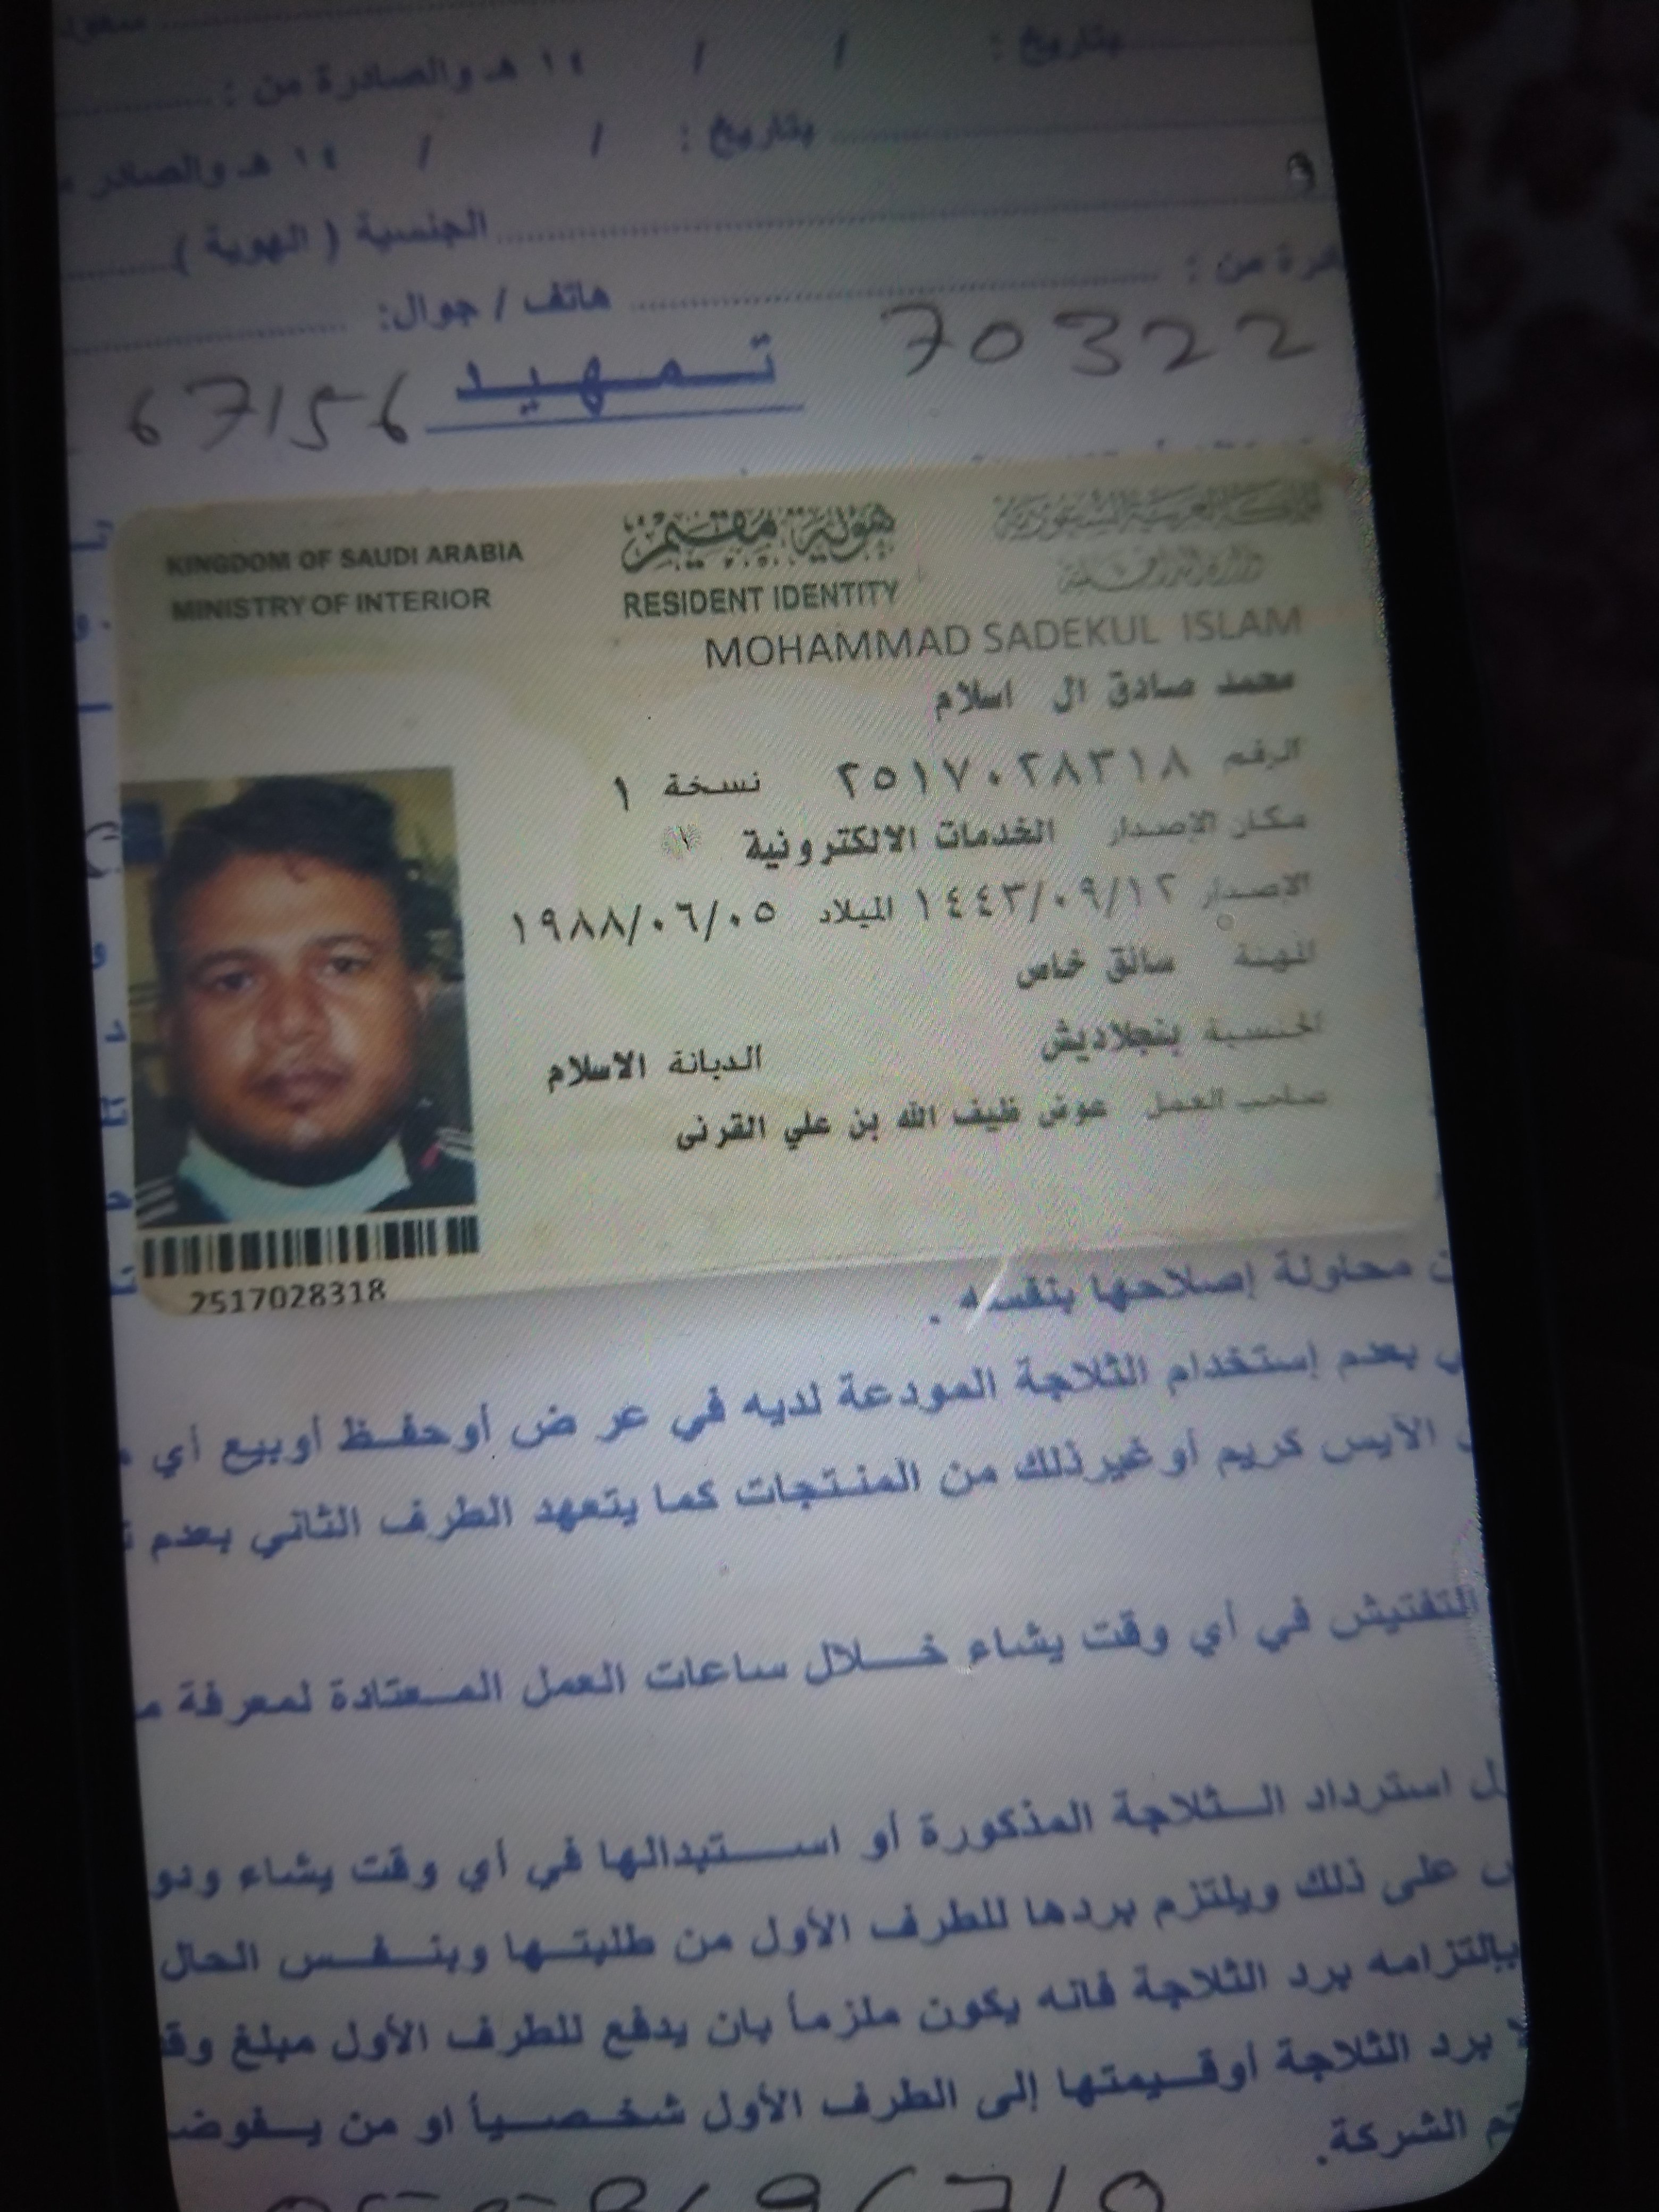 بتاريخ : / / ١٤ هـ والصادرة من :
بتاريخ : / / ١٤ هـ والصادر
الجنسية ( الهوية )
من : هاتف / جوال:
70322 تـمـهيـد 67156
KINGDOM OF SAUDI ARABIA هوية مقيم المملكة العربية السعودية
MINISTRY OF INTERIOR RESIDENT IDENTITY وزارة الداخلية
MOHAMMAD SADEKUL ISLAM
محمد صادق ال اسلام
الرقم ٢٥١٧٠٢٨٣١٨ نسخة ١
مكان الإصدار الخدمات الالكترونية
الإصدار ١٤٤٣/٠٩/١٢ الميلاد ١٩٨٨/٠٦/٠٥
المهنة سائق خاص
الجنسية بنجلاديش الديانة الاسلام
صاحب العمل عوض ظيف الله بن علي القرنى
2517028318
محاولة إصلاحها بنفسه .
بعدم إستخدام الثلاجة المودعة لديه في عر ض أوحفـظ أوبيع أي
الآيس كريم أوغيرذلك من المنتجات كما يتعهد الطرف الثاني بعدم
التفتيش في أي وقت يشاء خـــلال ساعات العمل المـعتادة لمعرفة
استرداد الـــثلاجة المذكورة أو اســـتبدالها في أي وقت يشاء
على ذلك ويلتزم بردها للطرف الأول من طلبتـها وبنـفـس الحال
بإلتزامه برد الثلاجة فانه يكون ملزمأ بان يدفع للطرف الأول مبلغ
برد الثلاجة أوقـيمتها إلى الطرف الأول شخـصـيأ او من
الشركة.